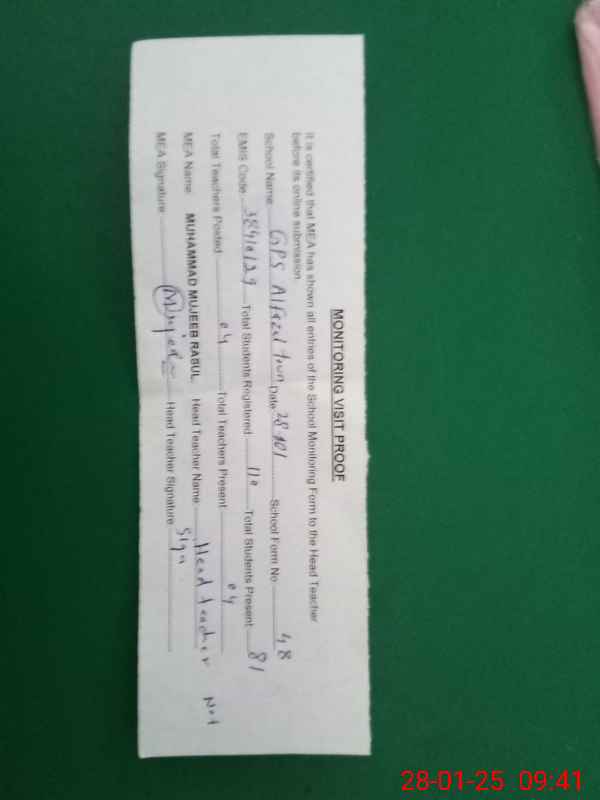 MONITORING VISIT PROOF
It is certified that MEA has shown all entries of the School Monitoring Form to the Head Teacher
before its online submission.
School Name GPS Alfazal town Date 28/01 School Form No 48
EMIS Code 38410129 Total Students Registered 110 Total Students Present 81
Total Teachers Posted 04 Total Teachers Present 04
MEA Name MUHAMMAD MUJEEB RASUL Head Teacher Name Head teacher Not
MEA Signature Mujeeb Head Teacher Signature Sign
28-01-25 09:41